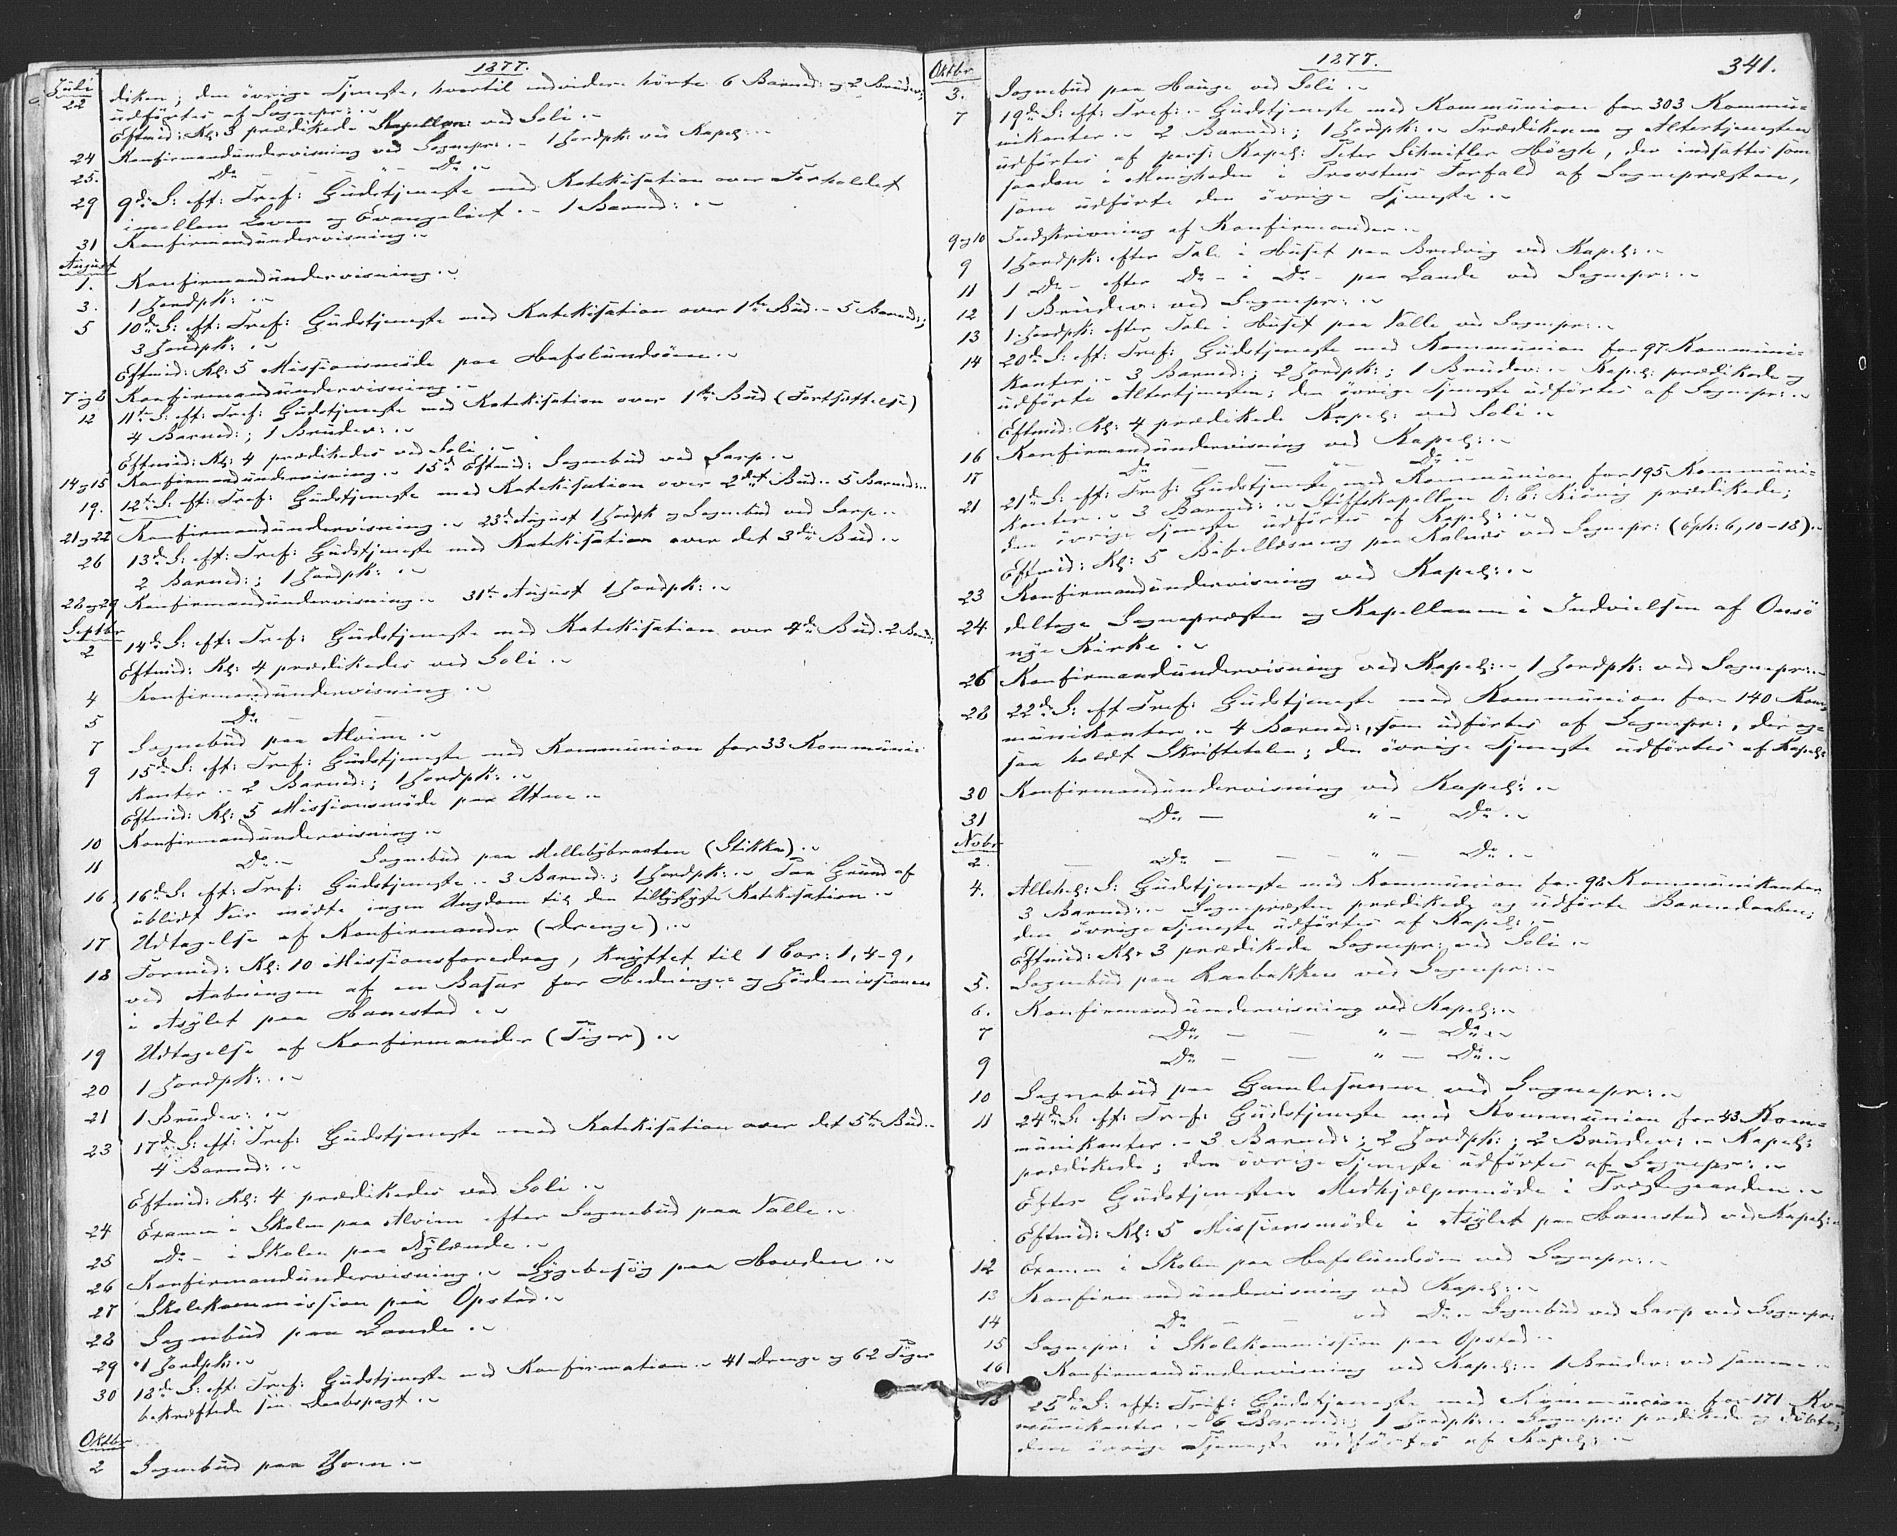 1877.
Juli
22 diken; den övrige Tjeneste, hvortil endvidere hörte 6 Barned: og 2 Brudev:,
udförtes af Sognepr: .
Eftmid: Kl: 3 prædikede Kapellan: ved Soli .
24 Konfirmandundervisning ved Sognepr: . 1 Jordpk: ved Kapel: .
25. Do - " - Do .
29 9de S: eft: Tref: Gudstjeneste med Katekisation over Forholdet
imellem Loven og Evangeliet . 1 Barned: .
31 Konfirmandundervisning .
August
1. Konfirmandundervisning .
3. 1 Jordpk: .
5 10de S: eft: Tref: Gudstjeneste med Katekisation over 1te Bud . 5 Barned:;
3 Jordpk: .
Eftmid: Kl: 5 Missionsmöde paa Hafslundsöen .
7 og 8 Konfirmandundervisning .
12 11te S: eft: Tref: Gudstjeneste med Katekisation over 1te Bud (Fortsættelse)
4 Barned:; 1 Brudev: .
Eftmid: Kl: 4 prædikedes ved Soli .
14 og 15 Konfirmandundervisning . 15de Eftmid: Sognebud ved Sarp .
19. 12te S: eft: Tref: Gudstjeneste med Katekisation over 2det Bud . 5 Barned: .
21 og 22 Konfirmandundervisning . 23de August 1 Jordpk og Sognebud ved Sarp .
26 13de S: eft: Tref: Gudstjeneste med Katekisation over det 3die Bud .
2 Barned:; 1 Jordpk: .
28 og 29 Konfirmandundervisning . 31te August 1 Jordpk: .
Septbr
2 14de S: eft: Tref: Gudstjeneste med Katekisation over 4de Bud . 2 Barned:
Eftmid: Kl: 4 prædikedes ved Soli .
4 Konfirmandundervisning .
5 Do - -
7 Sognebud paa Alvim .
9 15de S: eft: Tref: Gudstjeneste med Kommunion for 33 Kommuni-
kanter . 2 Barned:; 1 Jordpk: .
Eftmid: Kl: 5 Missionsmöde paa Utne .
10 Konfirmandundervisning .
11 Do . Sognebud paa Mellebybraaten (Stikka) .
16 16de S: eft: Tref: Gudstjeneste . 3 Barned:; 1 Jordpk: . Paa Grund af
ublidt Veir mödte ingen Ungdom til den tillyste Katekisation .
17 Udtagelse af Konfirmander (Drenge) .
18 Formid: Kl: 10 Missionsforedrag, knyttet til 1 Cor: 1, 4-9,
ved Aabningen af en Basar for Hedninge- og Jödemissionen
i Asylet paa Hanestad .
19 Udtagelse af Konfirmander (Piger) .
20 1 Jordpk: .
21 1 Brudev: .
23 17de S: eft: Tref: Gudstjeneste med Katekisation over det 5te Bud .
4 Barned: .
Eftmid: Kl: 4 prædikedes ved Soli .
24 Examen i Skolen paa Alvim efter Sognebud paa Valle .
25 Do - i Skolen paa Nylænde .
26 Konfirmandundervisning . Sygebesög paa Hovden .
27 Skolekommission paa Opstad .
28 Sognebud paa Lande .
29 1 Jordpk: .
30 18de S: eft: Tref: Gudstjeneste med Konfirmation . 41 Drenge og 62 Piger
bekræftede sin Daabspagt .
Oktbr
2 Sognebud paa Yven .
1877.
341.
Oktbr
3. Sognebud paa Hauge ved Soli .
7 19de S: eft: Tref: . Gudstjeneste med Kommunion for 303 Kommu-
nikanter . 2 Barned:; 1 Jordpk: . Prædikenen og Altertjenesten
udförtes af pers: Kapel: Peter Schnitler Höegh, der indsattes som
saadan i Menigheden i Provstens Forfald af Sognepræsten,
som udförte den övrige Tjeneste .
9 og 10 Indskrivning af Konfirmander .
9 1 Jordpk: efter Tale i Huset paa Bredvig ved Kapel: .
11 1 Do - efter Do - i Do - paa Lande ved Sognepr: .
12 1 Brudev: ved Sognepr: .
13 1 Jordpk: efter Tale i Huset paa Valle ved Sognepr: .
14 20de S: eft: Tref: Gudstjeneste med Kommunion for 97 Kommuni-
kanter . 3 Barned:; 2 Jordpk:; 1 Brudev: . Kapel: prædikede og
udförte Altertjenesten; den övrige Tjeneste udförtes af Sognepr: .
Eftmid: Kl: 4 prædikede Kapel: ved Soli .
16 Konfirmandundervisning ved Kapel: .
17 Do - - " - Do .
21 21de S: eft: Tref: Gudstjeneste med Kommunion for 195 Kommuni-
kanter . 3 Barned: . Stiftskapellan O: C: Kiönig prædikede;
den övrige Tjeneste udförtes af Kapel: .
Eftmid: Kl: 5 Bibellæsning paa Kalnæs ved Sognepr: (Eph: 6, 10-18) .
23 Konfirmandundervisning ved Kapel: .
24 deltoge Sognepræsten og Kapellanen i Indvielsen af Onsö
nye Kirke .
26 Konfirmandundervisning ved Kapel: . 1 Jordpk: ved Sognepr: .
28 22de S: eft Tref: Gudstjeneste med Kommunion for 140 Kom-
munikanter . 4 Barned:, som udförtes af Sognepr:, der og-
saa holdt Skriftetalen; den övrige Tjeneste udförtes af Kapel:
30 Konfirmandundervisning ved Kapel: .
31 Do - " - Do .
Nobr
2. - Do - - - " - Do .
4. Allehel: S: Gudstjeneste med Kommunion for 92 Kommunikanter
3 Barned: . Sognepræsten prædikede og udförte Barnedaaben;
den övrige Tjeneste udförtes af Kapel: .
Eftmid: Kl: 3 prædikede Sognepr: ved Soli .
5. Sognebud paa Raabakken ved Sognepr: .
6. Konfirmandundervisning ved Kapel: .
7 Do - - " - Do .
9 Do - - " - Do .
10 Sognebud paa ved Sognepr: .
11 24de S: eft: Tref: Gudstjeneste med Kommunion for 43 Kom-
munikanter . 3 Barned:; 2 Jordpk:; 2 Brudev: . Kapel:
prædikede; den övrige Tjeneste udförtes af Sognepr: .
Efter Gudstjenesten Medhjælpermöde i Præstegaarden .
Eftmid: Kl: 5 Missionsmöde i Asylet paa Hanestad ved Kapel: .
12 Examen i Skolen paa Hafslundsöen ved Sognepr: .
13 Konfirmandundervisning ved Kapel: .
14 Do - - ved Do . Sognebud ved Sarp ved Sognepr:
15 Sognepr: i Skolekommission paa Opstad .
16 Konfirmandundervisning ved Kapel: . 1 Brudev: ved samme .
18 25de S: eft: Tref: Gudstjeneste med Kommunion for 171 Kom-
munikanter . 6 Barned:; 1 Jordpk: . Sognepr: prædikede og döbte;
den övrige Tjeneste udförtes af Kapel: .